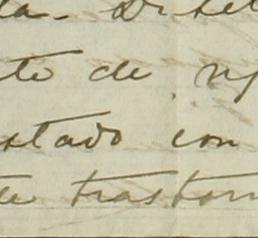 da. Di
to de
stado con
de trastorn